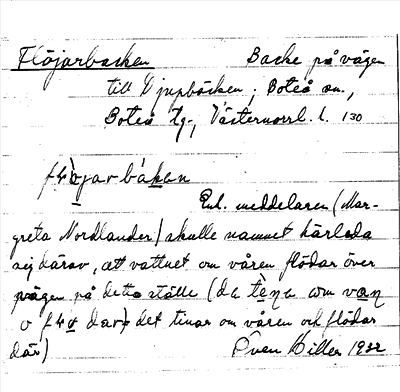 Flöjarbacken Backe på vägen
till Djupbäcken, Boteå sn.,
Boteå tg., Västernorrl. l. 130
Enl. meddelaren (Mar-
greta Nordlander) skulle namnet härleda
sig därav, att vattnet om våren flödar över
vägen på detta ställe (
det tinar om våren och flödar
där) Sven Hillen 1932